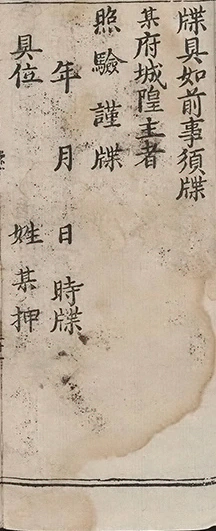 牒具如前事須牒
某府城隍主者
照驗謹牒
年月日時牒
具位姓某押